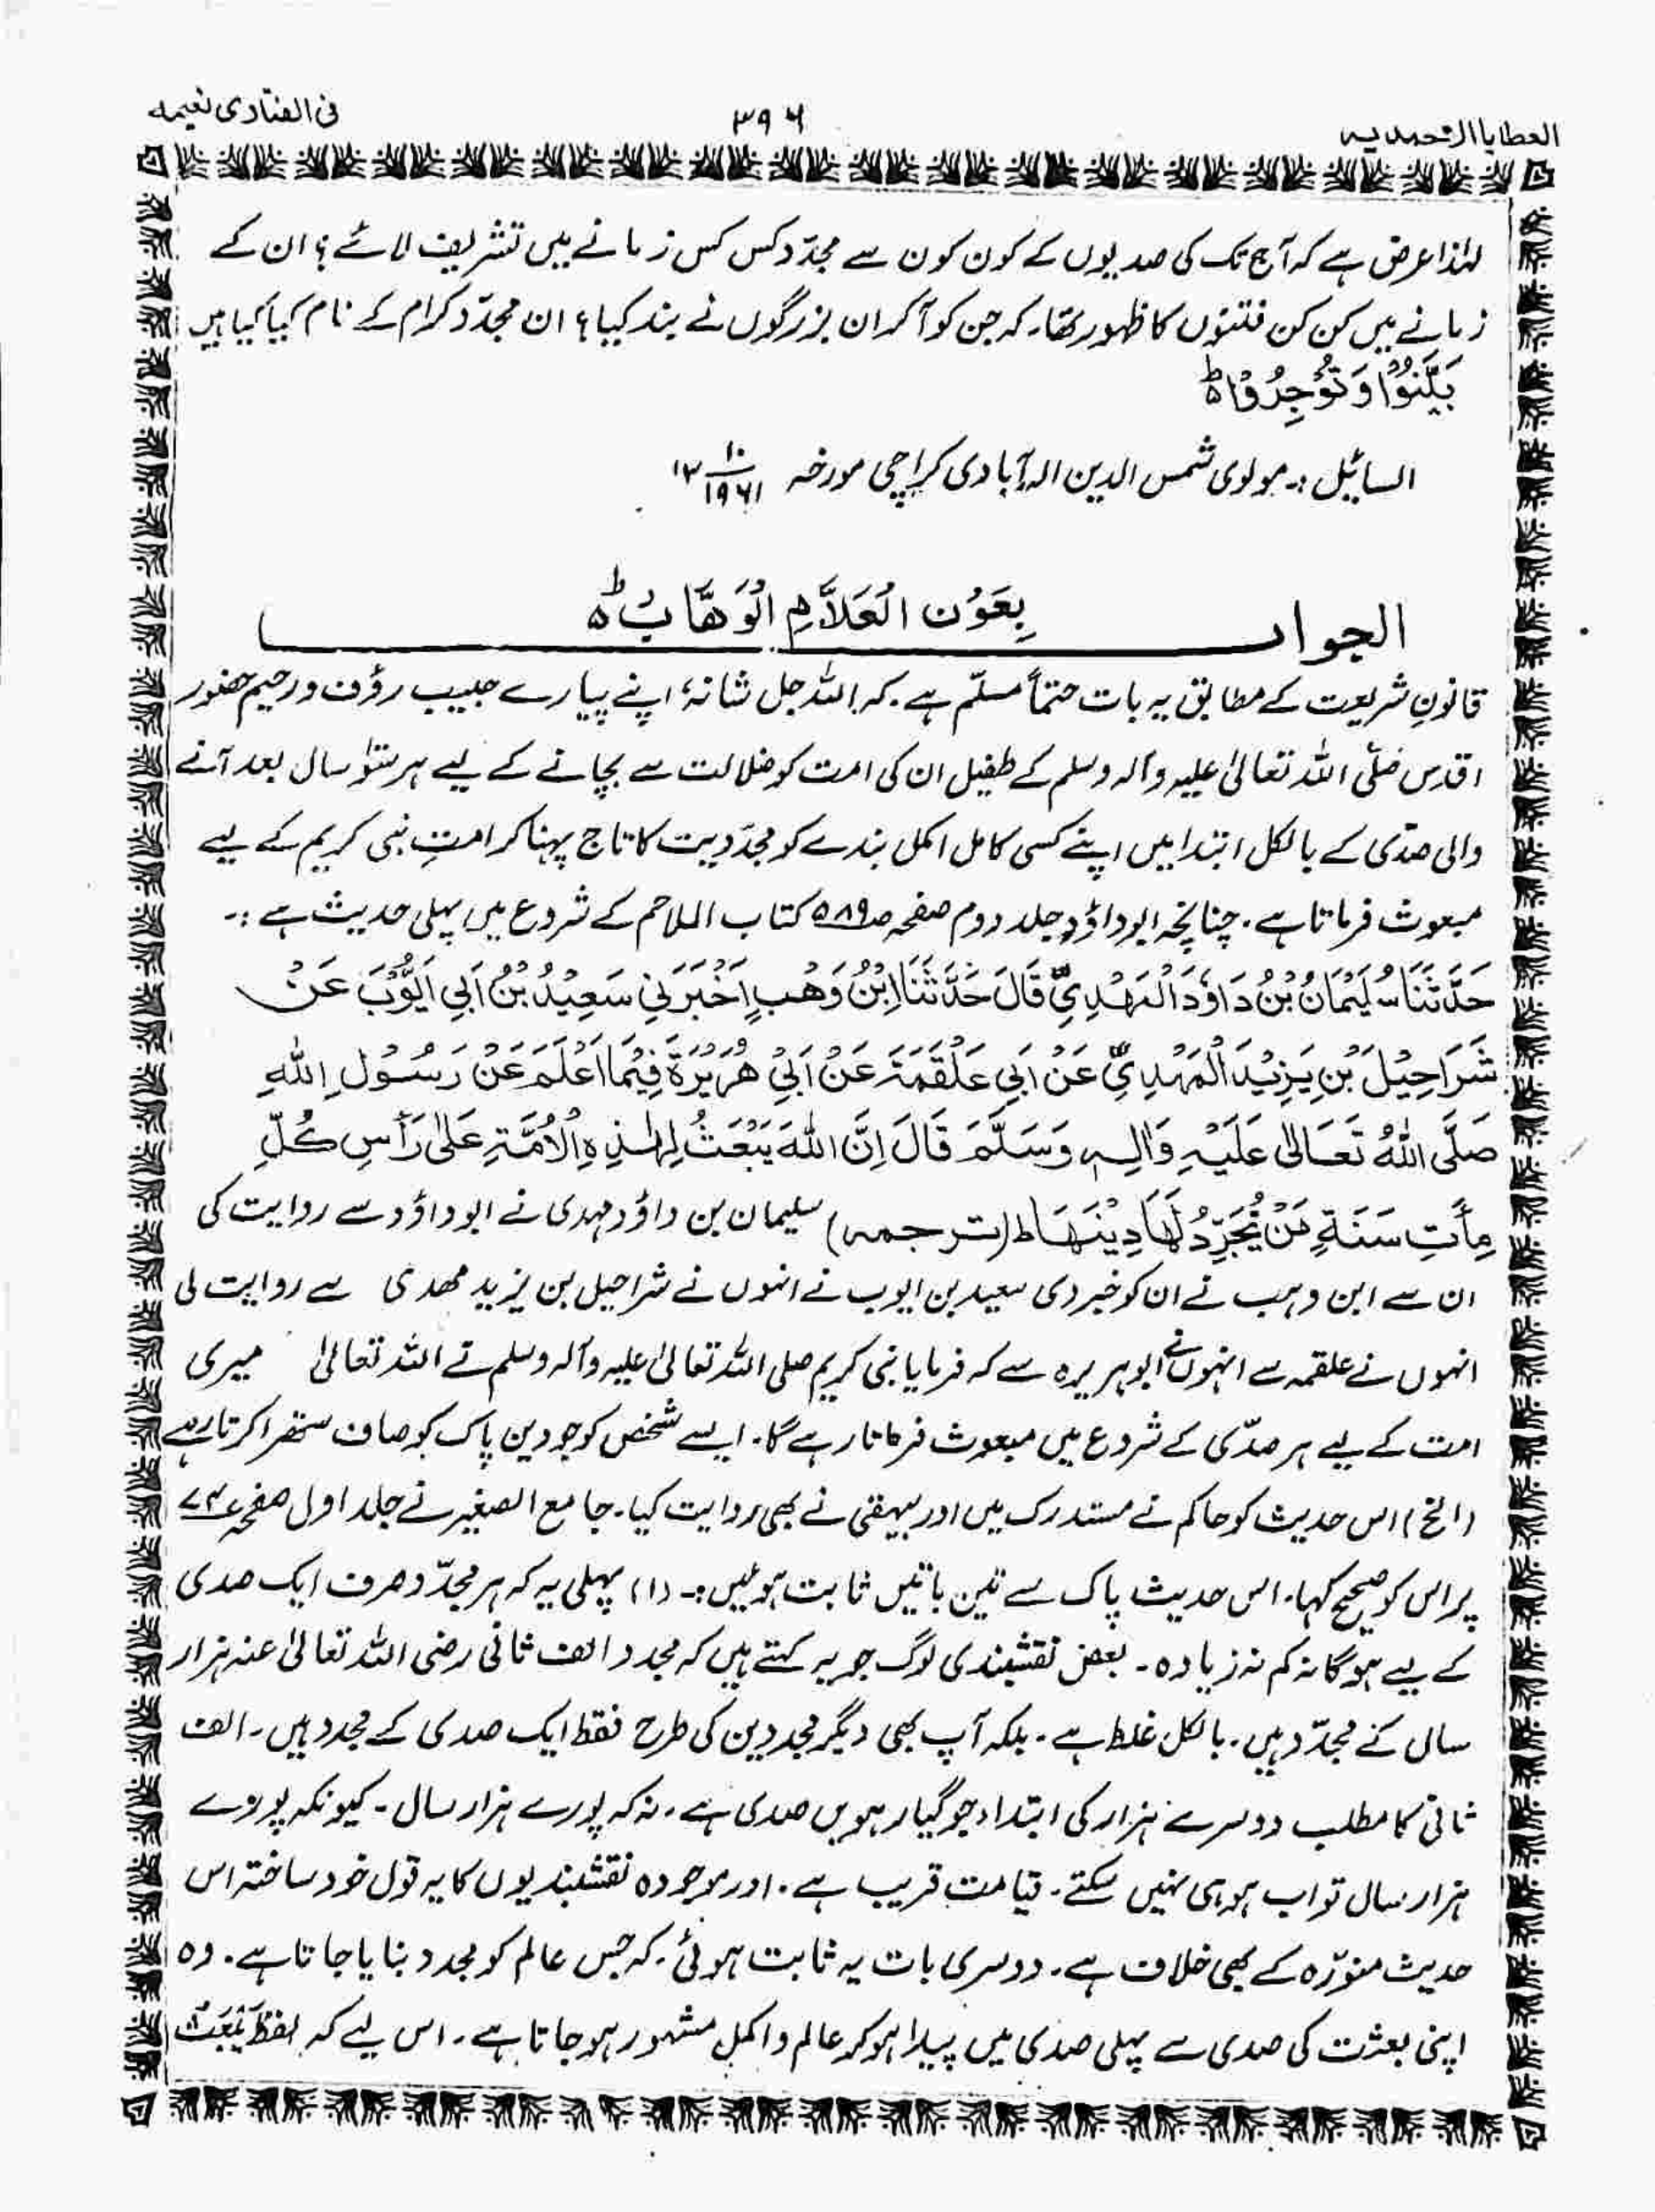 العطایا الاحمدیہ
۳۹۶
فی الفتاوی نعیمہ
لہٰذا عرض ہے کہ آج تک کی صدیوں کے کون کون سے مجدّد کس کس زمانے میں تشریف لائے؟ ان کے
زمانے میں کن کن فتنوں کا ظہور تھا۔ کہ جن کو آکر ان بزرگوں نے بند کیا؟ ان مجدّد کرام کے نام کیا کیا ہیں
بَیِّنُوْا وَ تُوْجِرُوْا ہ ط
السائیل :۔ مولوی شمس الدین الہ آبادی کراچی مورخہ ۱۳ ۱۰ ۱۹۶۱
الجواب بِعَوْنِ الْعَلَّامِ الْوَھَّابُ ہ ط
قانونِ شریعت کے مطابق یہ بات حتماً مسلّم ہے۔ کہ اللہ جل شانہٗ اپنے پیارے حبیب رؤف و رحیم حضور
اقدس صلّی اللہ تعالیٰ علیہ وآلہ وسلم کے طفیل ان کی امت کو ضلالت سے بچانے کے لیے ہر سَو سال بعد آنے
والی صدّی کے بالکل ابتدا میں اپنے کسی کامل اکمل بندے کو مجدّدیت کا تاج پہنا کر امتِ نبی کریم کے لیے
مبعوث فرماتا ہے۔ چنانچہ ابوداؤد جلد دوم صفحہ ص۵۸۹ کتاب الملاحم کے شروع میں پہلی حدیث ہے :۔
حَدَّثَنَا سُلَیْمَانُ بْنُ دَاوٗدَ الْمَہْدِیِّ قَالَ حَدَّثَنَا اِبْنُ وَھْبٍ اَخْبَرَنِی سَعِیْدُ بْنُ اَبِی اَیُّوْبَ عَنْ
شَرَاحِیْلَ بْنِ یَزِیْدَ الْمَہْدِیِّ عَنْ اَبِی عَلْقَمَۃَ عَنْ اَبِیْ ھُرَیْرَۃَ فِیْمَا اَعْلَمَ عَنْ رَسُوْلِ اللہِ
صَلَّی اللہُ تَعَالٰی عَلَیْہِ وَاٰلِہٖ وَسَلَّمَ قَالَ اِنَّ اللہَ یَبْعَثُ لِہٰذِہِ الْاُمَّۃِ عَلیٰ رَأْسِ کُلِّ
مِأَتِ سَنَۃٍ مَنْ یُّجَدِّدُ لَھَا دِیْنَھَا ط (ترجمہ) سلیمان بن داؤد مہدی نے ابوداؤد سے روایت کی
ان سے ابن وہب نے ان کو خبر دی سعید بن ایوب نے انہوں نے شراحیل بن یزید مھدی سے روایت لی
انہوں نے علقمہ سے انہوں نے ابوہریرہ سے کہ فرمایا نبی کریم صلی اللہ تعالیٰ علیہ وآلہ وسلم نے اللہ تعالیٰ میری
امت کے لیے ہر صدّی کے شروع میں مبعوث فرماتا رہے گا۔ ایسے شخص کو جو دین پاک کو صاف ستھرا کرتا رہے
(الخ) اس حدیث کو حاکم نے مستدرک میں اور بیہقی نے بھی روایت کیا۔ جامع الصغیر نے جلد اول صفحہ ۷۴
پر اس کو صحیح کہا۔ اس حدیث پاک سے تین باتیں ثابت ہوئیں :۔ (۱) پہلی یہ کہ ہر مجدّد صرف ایک صدی
کے لیے ہو گا نہ کم نہ زیادہ۔ بعض نقشبندی لوگ جو یہ کہتے ہیں کہ مجدد الف ثانی رضی اللہ تعالیٰ عنہ ہزار
سال کے مجدّد ہیں۔ بالکل غلط ہے۔ بلکہ آپ بھی دیگر مجددین کی طرح فقط ایک صدی کے مجدد ہیں۔ الف
ثانی کا مطلب دوسرے ہزار کی ابتداء جو گیارہویں صدی ہے۔ نہ کہ پورے ہزار سال۔ کیونکہ پورے
ہزار سال تو اب ہو ہی نہیں سکتے۔ قیامت قریب ہے۔ اور موجودہ نقشبندیوں کا یہ قول خود ساختہ اس
حدیث منوّرہ کے بھی خلاف ہے۔ دوسری بات یہ ثابت ہوئی۔ کہ جس عالم کو مجدد بنایا جاتا ہے۔ وہ
اپنی بعثت کی صدی سے پہلی صدی میں پیدا ہو کر عالم و اکمل مشہور ہو جاتا ہے۔ اس لیے کہ لفظ یَبْعَثُ